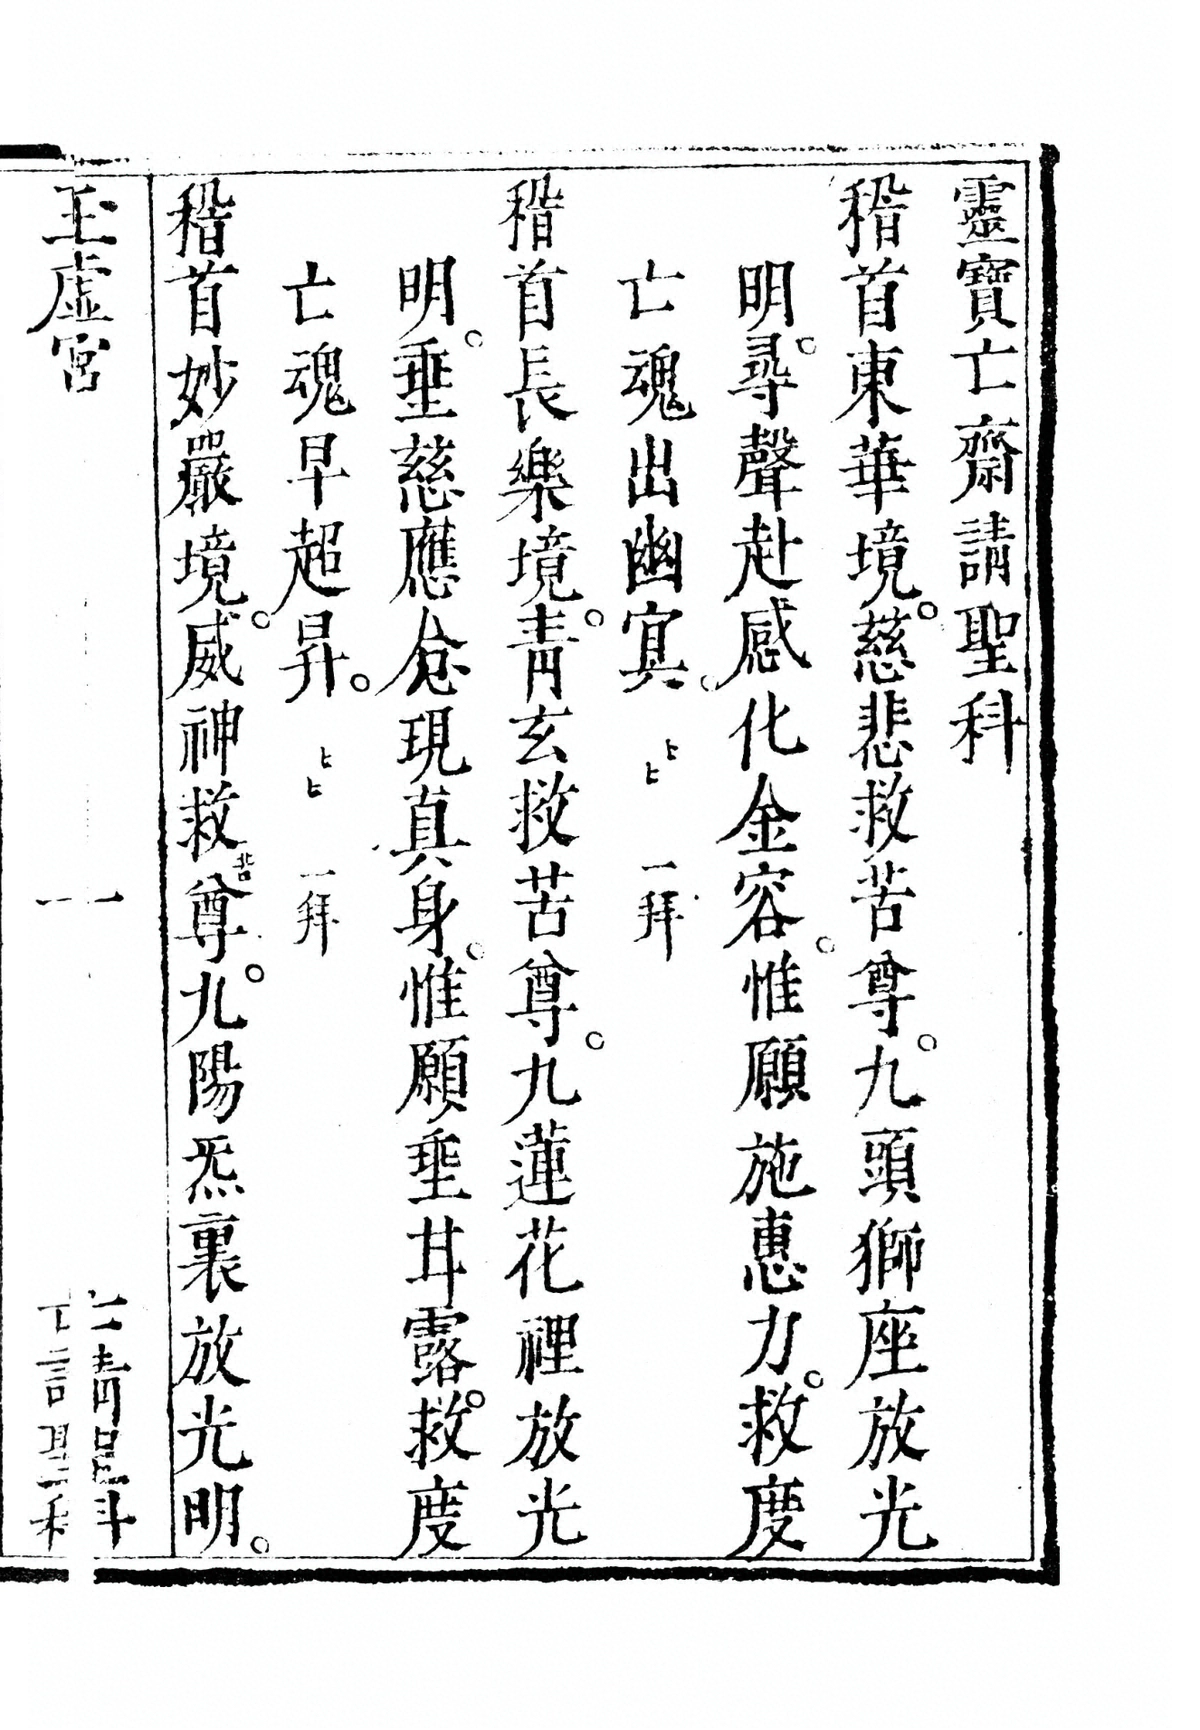 靈寶亡齋請聖科
稽首東華境。慈悲救苦尊。九頭獅座放光
明。尋聲赴感化金容。惟願施惠力。救度
亡魂出幽冥。〻 一拜
稽首長樂境。青玄救苦尊。九蓮花裡放光
明。垂慈應念現真身。惟願垂甘露。救度
亡魂早超昇。〻 一拜
稽首妙嚴境。威神救苦尊。九陽炁裏放光明。
玉虛宮 一 亡請聖科